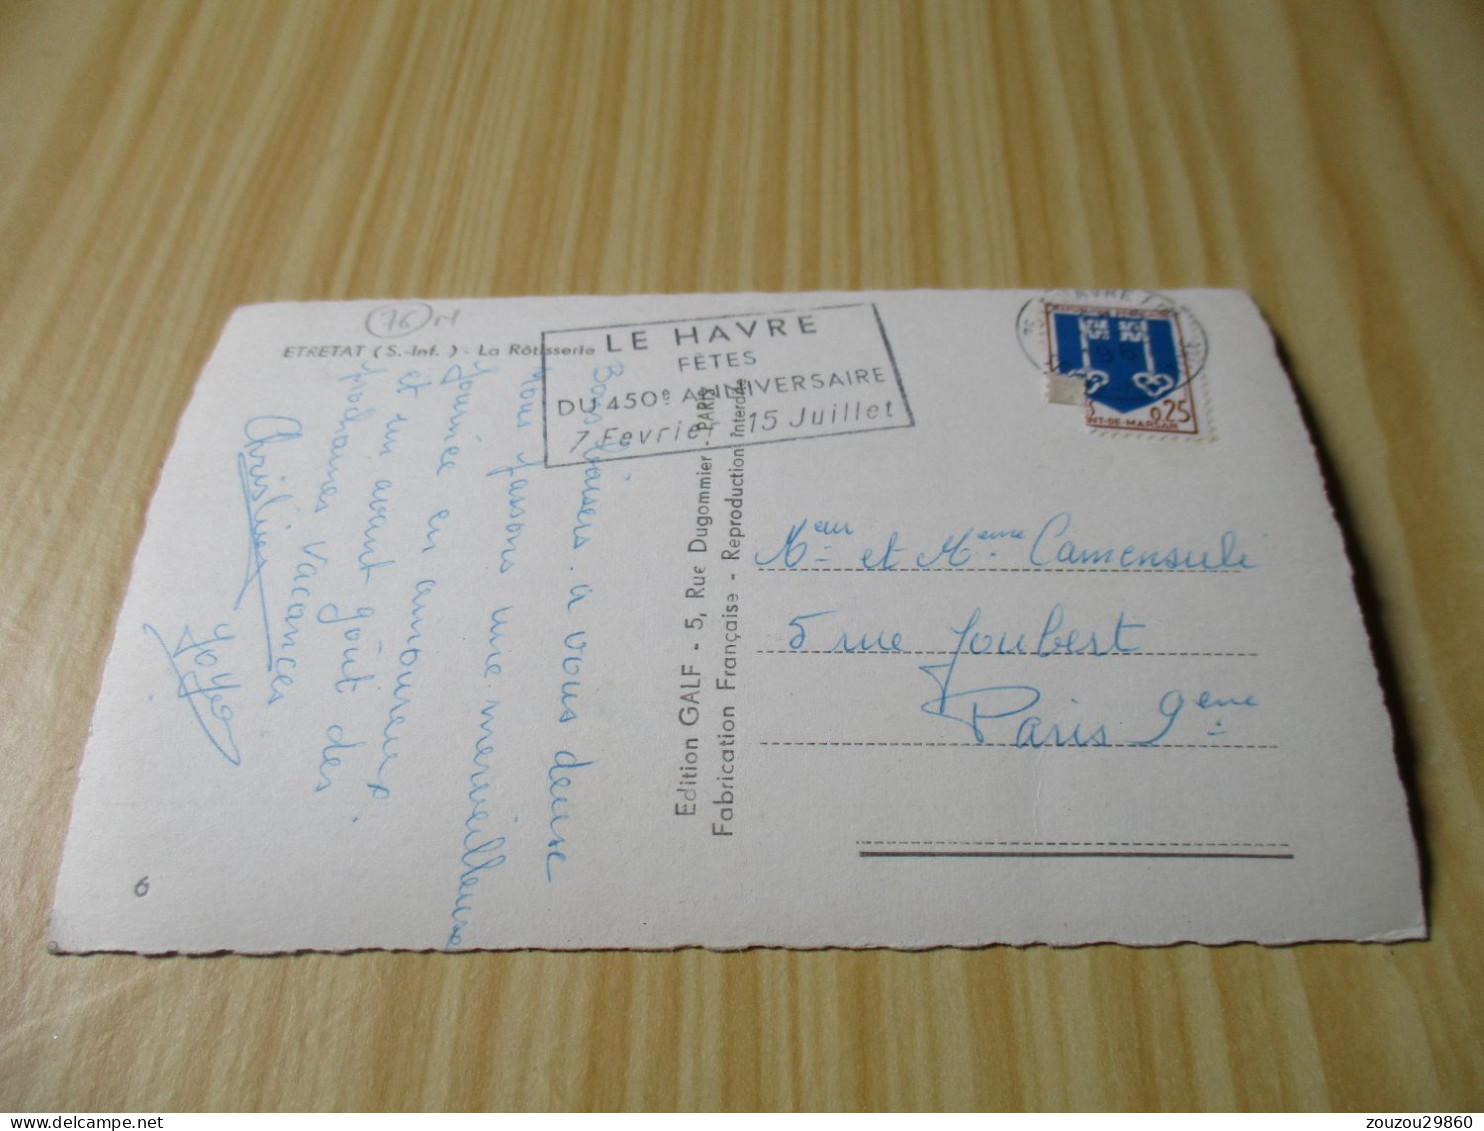 (76) M
ETRETAT (S.-Inf.) - La Rôtisserie
LE HAVRE
FÊTES
DU 450e ANNIVERSAIRE
7 Fevrier 15 Juillet
HAVRE
0.25
NT-DE-MARSAN
Bons baisers à vous deux
Nous passons une merveilleuse
journée en amoureux
et un avant goût des
prochaines vacances.
Christiane
Edition GALF - 5, Rue Dugommier - PARIS
Fabrication Française - Reproduction Interdite
Meur et Meme Camensuli
5 rue Joubert
Paris 9eme
6
zouzou29860